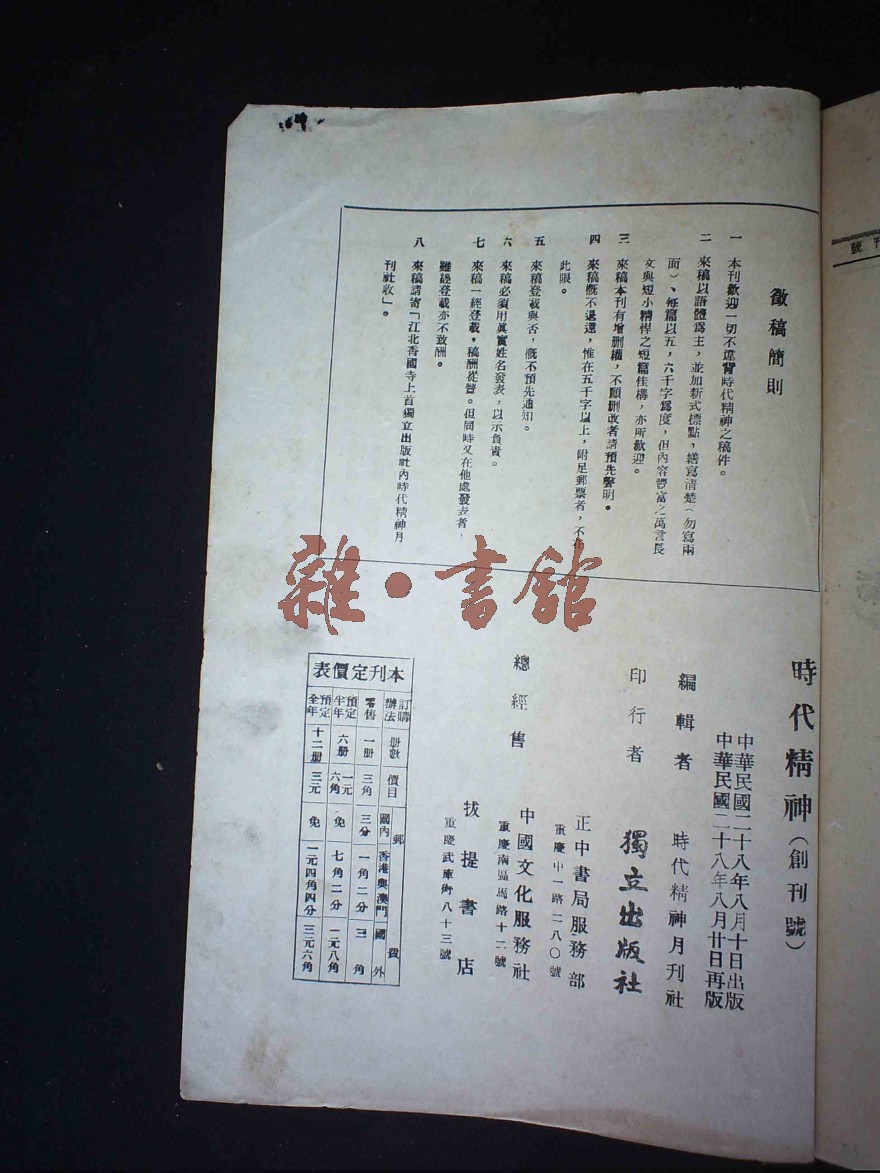 徵稿簡則
一 本刊歡迎一切不違背時代精神之稿件。
二 來稿以語體爲主，並加新式標點，繕寫清楚（勿寫兩
面）、每篇以五，六千字爲度，但內容豐富之萬言長
文與短小精悍之短篇佳構，亦所歡迎。
三 來稿本刊有增删權，不願删改者請預先聲明。
四 來稿概不退還，惟在五千字以上，附足郵票者，不在
此限。
五 來稿登載與否，概不預先通知。
六 來稿必須用眞實姓名發表，以示負責。
七 來稿一經登載，稿酬從豐。但同時又在他處發表者，
雖經登載亦不致酬。
八 來稿請寄「江北香國寺上首獨立出版社內時代精神月
刊社收」。
時代精神（創刊號）
中華民國二十八年八月十日出版
中華民國二十八年八月廿日再版
編輯者 時代精神月刊社
印行者 獨立出版社
總經售
正中書局服務部
重慶中一路二八〇號
中國文化服務社
重慶南區馬路十二號
拔提書店
重慶武庫街八十三號
本刊定價表
訂購辦法 册數 價目 郵費 國內 香港與澳門 國外
零售 一册 三角 三分 一角二分 三角
預定半年 六册 一元六角 免 七角二分 一元八角
預定全年 十二册 三元 免 一元四角四分 三元六角
刊號
雜·書館